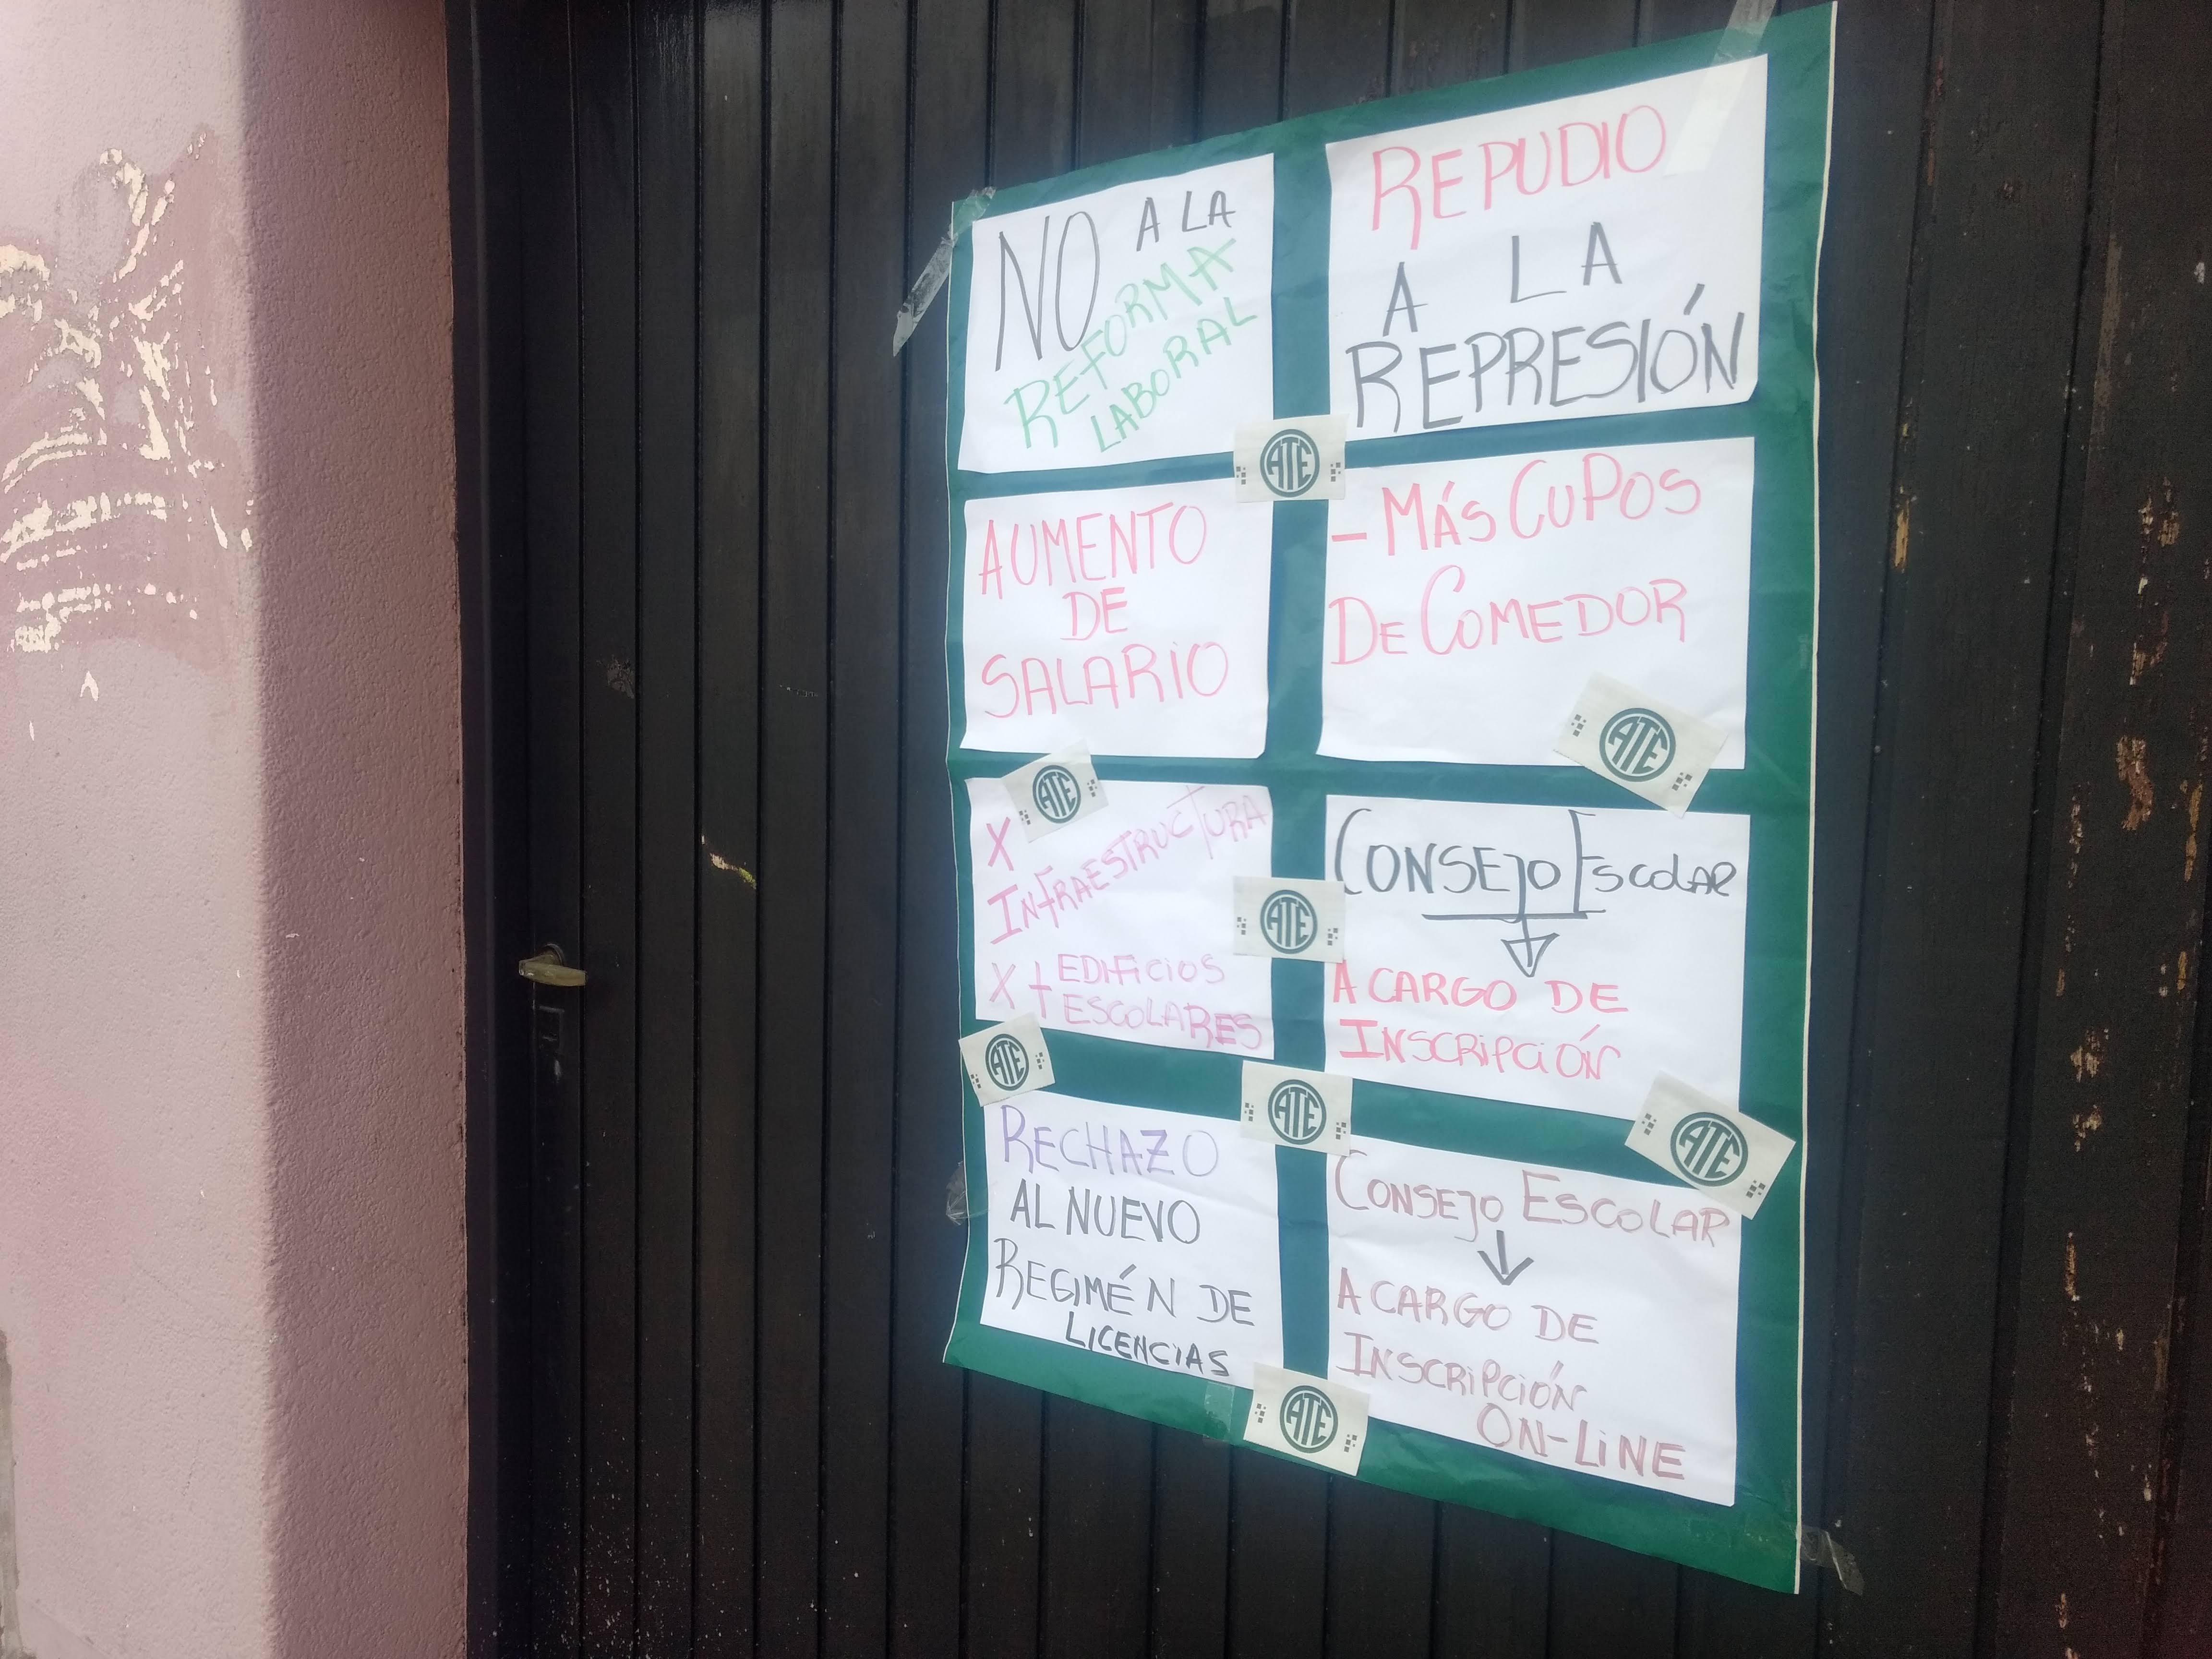 NO A LA
REFORMA
LABORAL
REPUDIO
A LA
REPRESIÓN
ATE
AUMENTO
DE
SALARIO
- MÁS CUPOS
DE COMEDOR
ATE
ATE
X
INFRAESTRUCTURA
X + EDIFICIOS
ESCOLARES
ATE
CONSEJO ESCOLAR
A CARGO DE
INSCRIPCIÓN
ATE
ATE
ATE
RECHAZO
AL NUEVO
REGIMÉN DE
LICENCIAS
CONSEJO ESCOLAR
A CARGO DE
INSCRIPCIÓN
ON-LINE
ATE